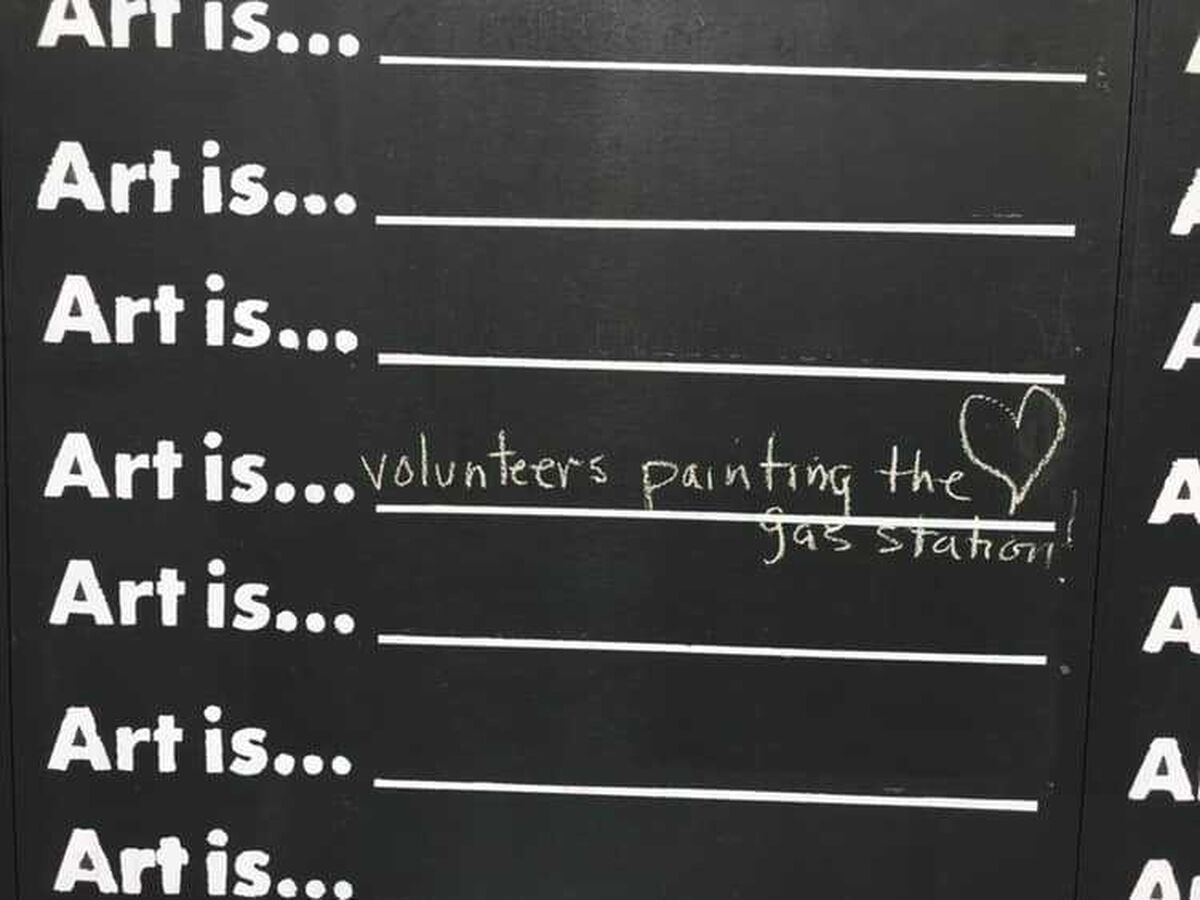 Art is...
Art is...
Art is...
Art is... volunteers painting the
gas station!
Art is...
Art is...
Art is...